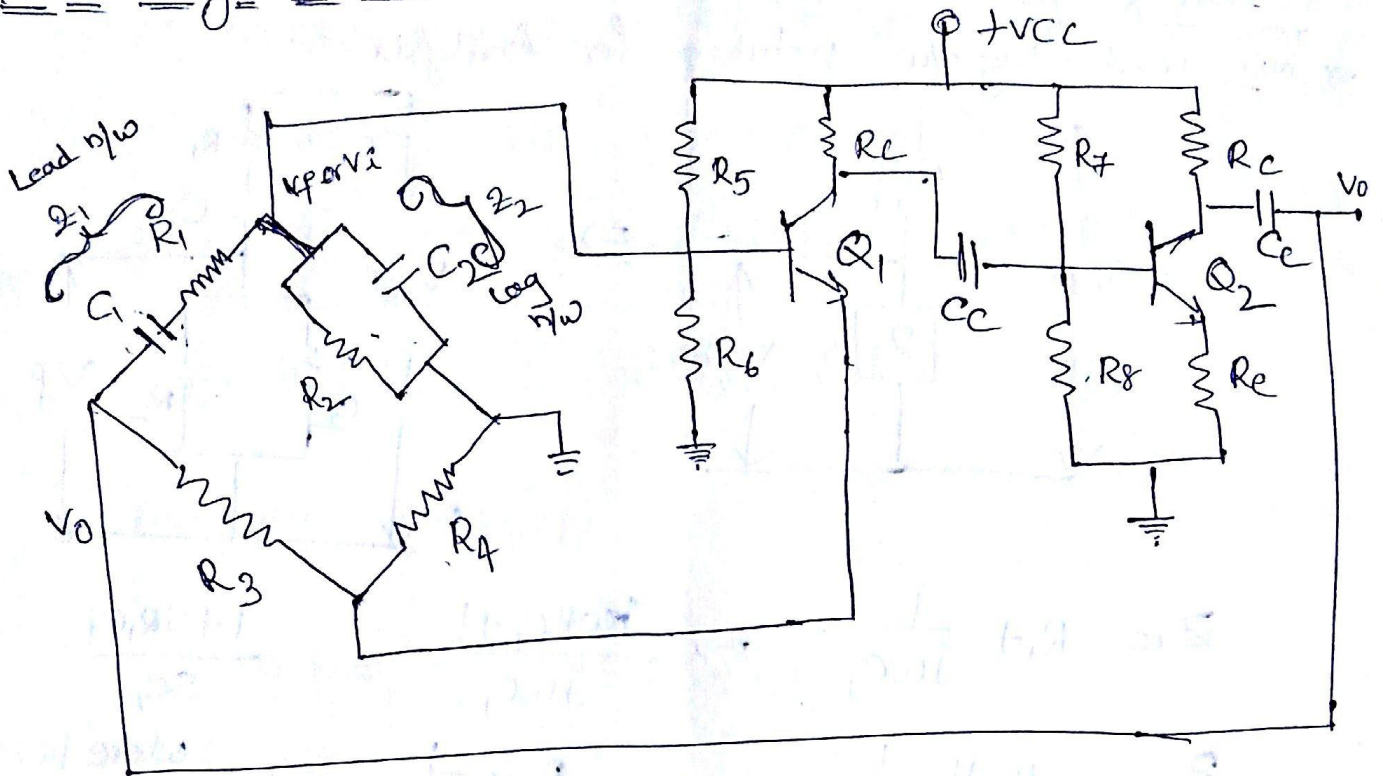 +VCC
Lead n/w
Z1
R1
C1
Vf or Vi
Z2
C2
Lag n/w
R2
R3
R4
Vo
R5
R6
RC
Q1
CC
R7
R8
RC
CC
Vo
Q2
Re